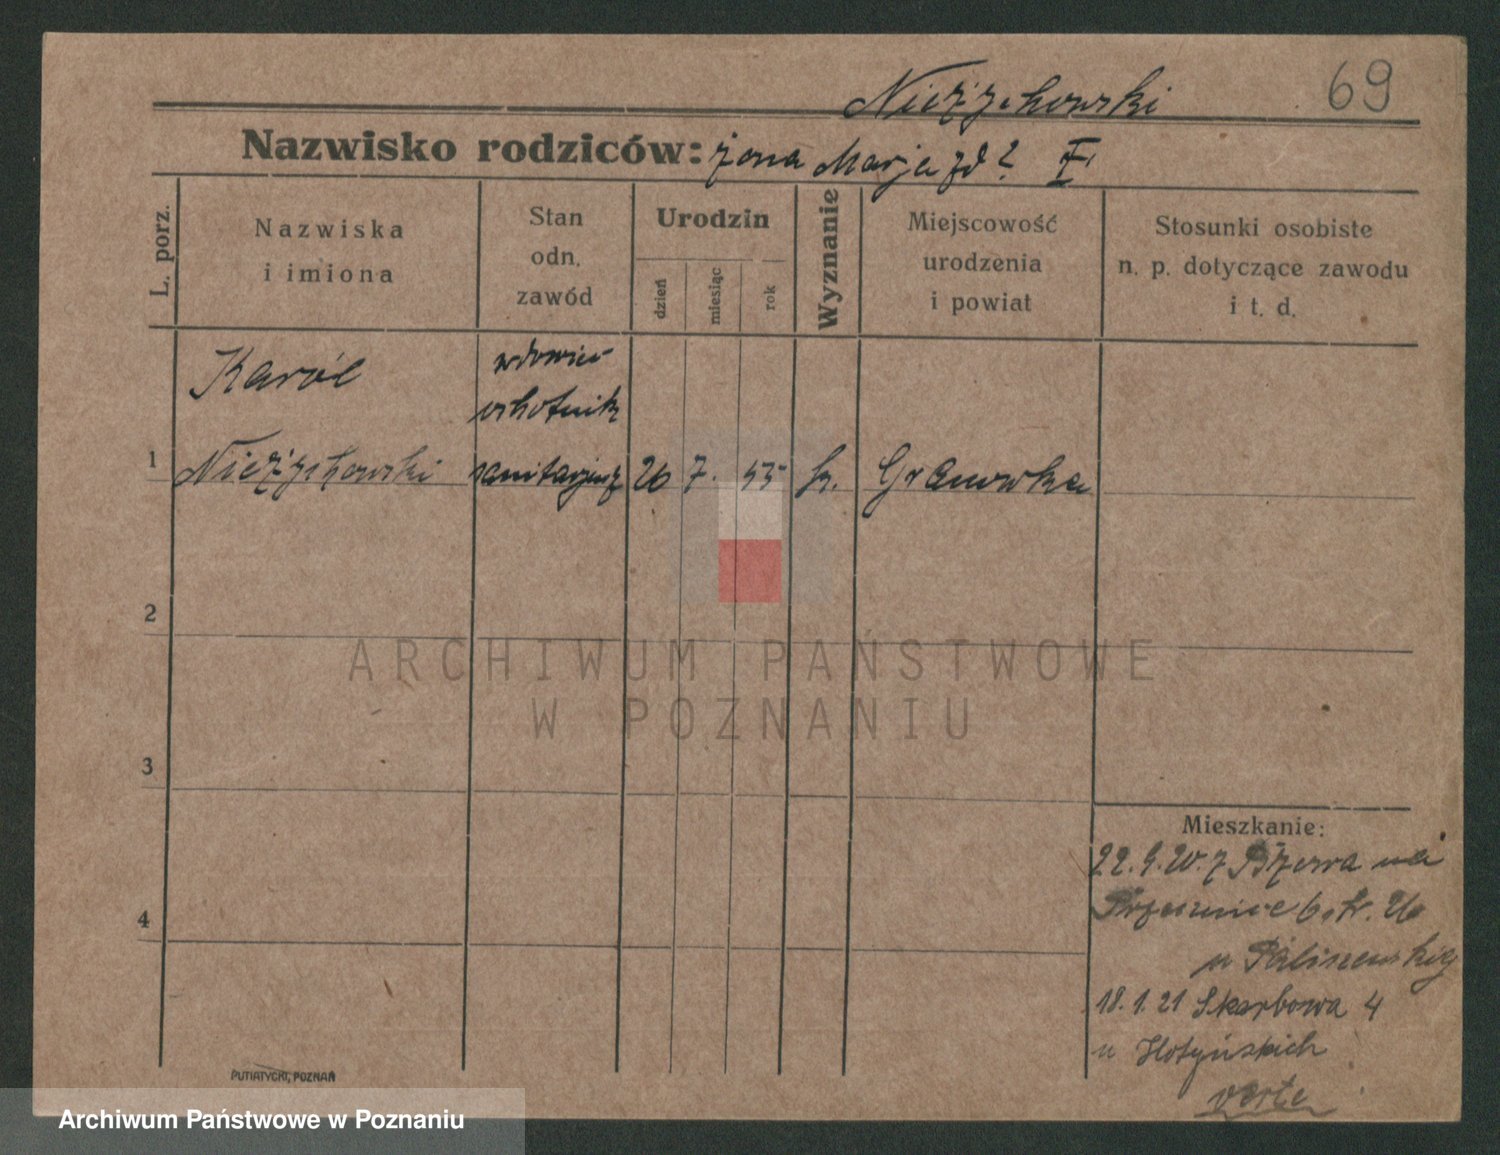 69
Nieżychowski
Nazwisko rodziców: żona Marja zd? F.
L. porz.
Nazwiska
i imiona
Stan
odn.
zawód
Urodzin
dzień
miesiąc
rok
Wyznanie
Miejscowość
urodzenia
i powiat
Stosunki osobiste
n. p. dotyczące zawodu
i t. d.
Karól
wdowiec
ochotnik
1 Nieżychowski sanitarjusz 26 7. 55 k. Granówka
2
ARCHIWUM PAŃSTWOWE
W POZNANIU
3
Mieszkanie:
22.9.20. z na
4
6 tr. 26
u
18.1.21 Skarbowa 4
u Hotyńskich
verte
PUTIATYCKI, POZNAŃ
Archiwum Państwowe w Poznaniu